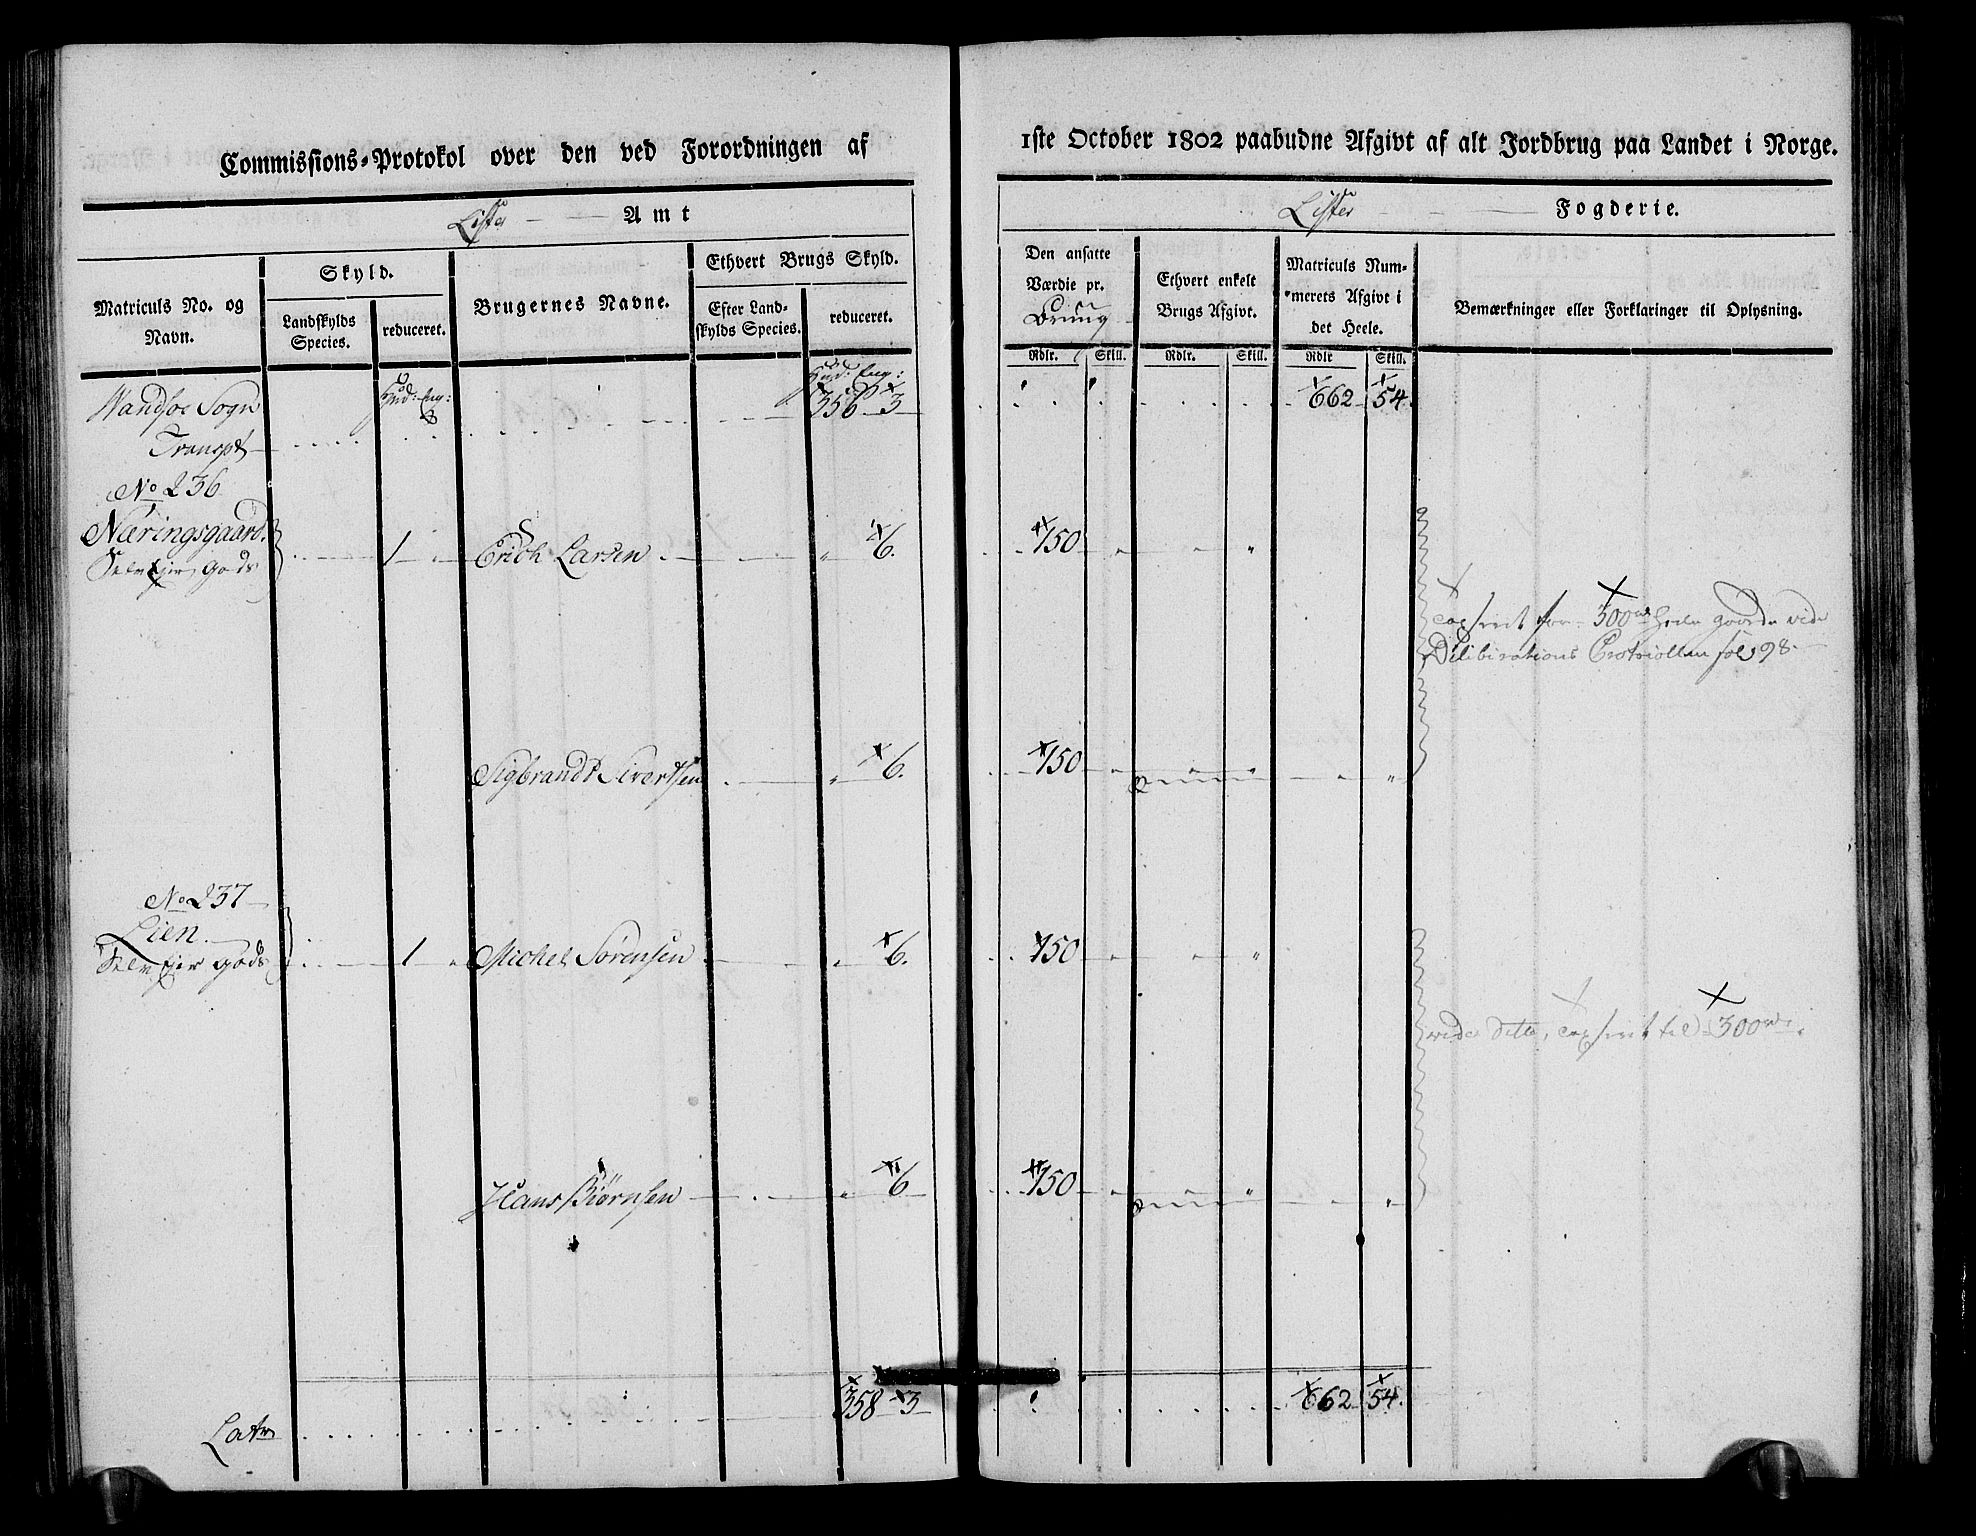 Commissions-Protokol over den ved Forordningen af
1ste October 1802 paabudne Afgivt af alt Jordbrug paa Landet i Norge.
Lister Amt
Lister Fogderie.
Matriculs No. og Navn.
Skyld.
Landskylds Species.
reduceret.
Brugernes Navne.
Ethvert Brugs Skyld.
Efter Land-
skylds Species.
reduceret.
Den ansatte
Værdie pr.
Ethvert enkelt
Brugs Afgivt.
Matriculs Num-
merets Afgivt i
det Heele.
Bemærkninger eller Forklaringer til Oplysning.
Rdlr. Skill. Rdlr. Skill. Rdlr Skill.
Hud: Eng: Hud: Eng:
Wandsøe Sogn 356 3 662 54.
Transpt
No 236
Næringsgaard.
Selv Ejer Gods 1 Erich Larsen 6. 150
Taxseret for 300 rd heele gaarde vide
Deliberations Protocollen fol 98.
Sigbrandt Sivertsen 6. 150
No 237
Lien.
Selv Ejer Gods 1 Michel Sørensen 6. 150
vide ditto, taxseret til 300 rd.
Hans Biørnsen 6 150
Latr 358 3 662 54.